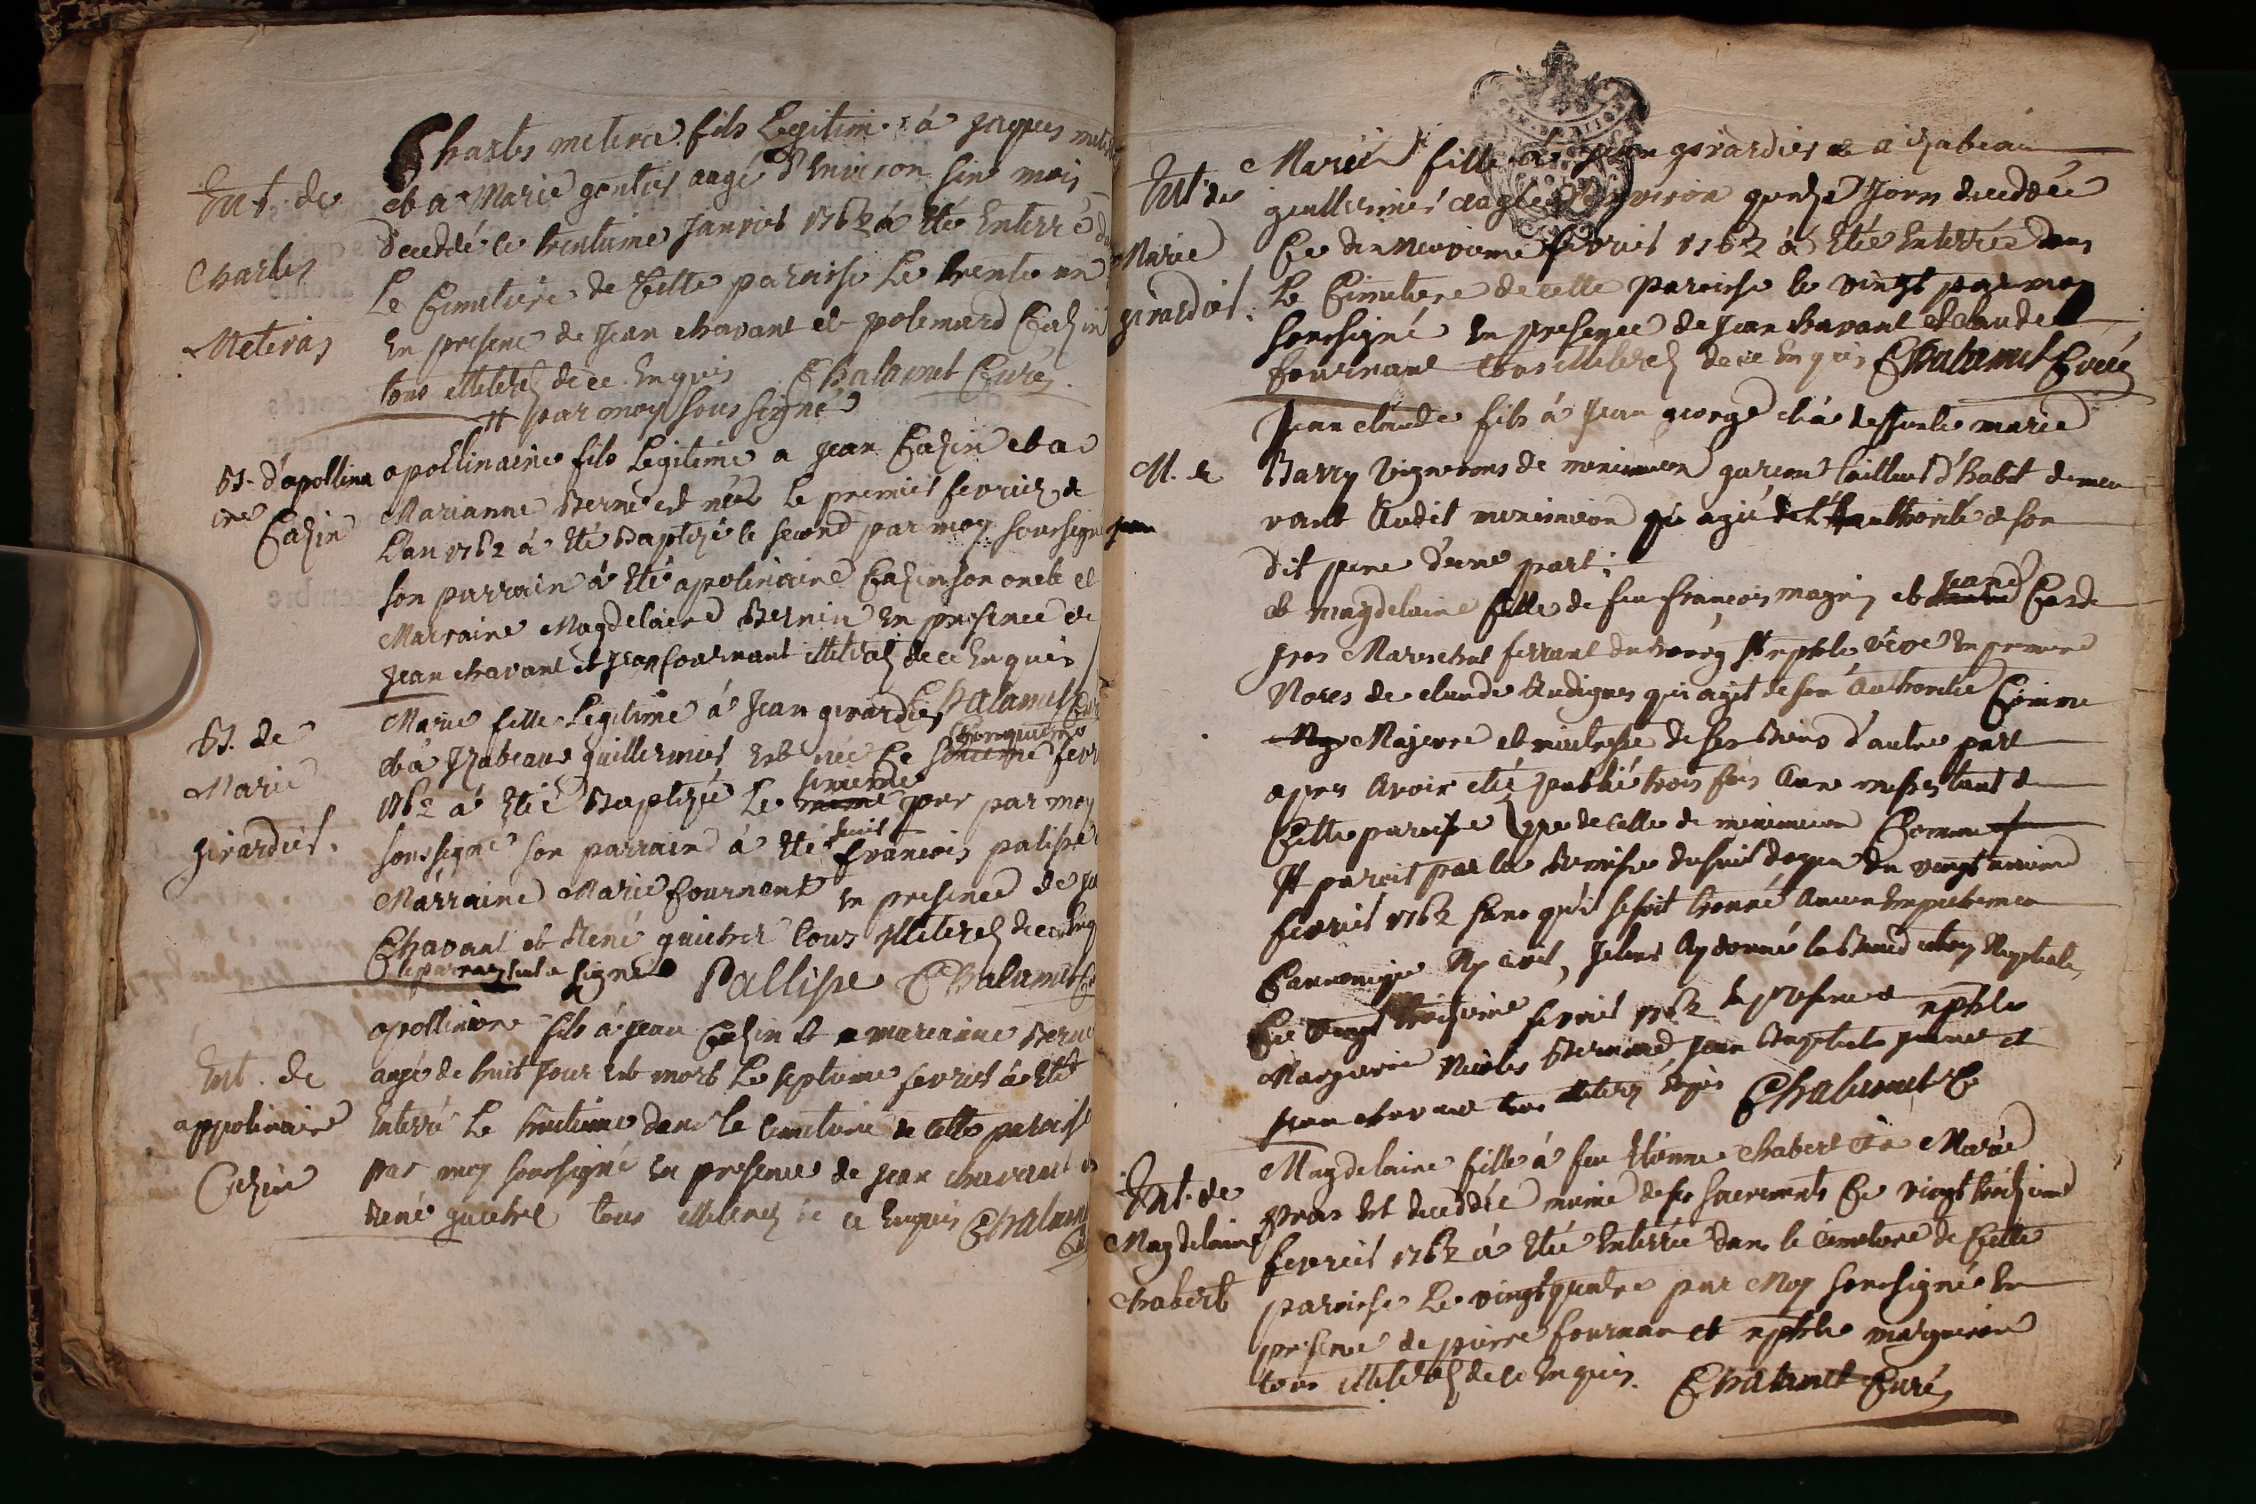 Ent. de
Charles
Meteras
Charles metera fils Legitime à Jaques
et a Marie gontier aagé d'Environ six mois
deceddé le trentieme Janvier 1762 a Eté Enterré
Le Cimetiere de Cette paroisse Le trente un
En presence de Jean chavant et polemard Cazin
tous illeterez de ce Enquis Chalamet Curé
par moy soussigné
Bt. d'apollina
ire
Cazin
apollinaire fils Legitime a Jean Cazin et a
Marianne Berne est née Le premier fevrier de
L'an 1762 a Eté Baptizé le second par moy soussigné
son parrain à Eté apolinaire Cazin son oncle et
Marraine Magdelaine Bernin en presence de
Jean chavant et Jean fournant illeterez de ce Enquis
Chalamet
Bt. de
Marie
girardier.
Marie fille Legitime à Jean girardier
et à Izabeau guillermier est née Ce cinquieme
1762 a Eté Baptizée Le sixieme par moy
soussigné son parrain à Eté sieur francois palisse
Marraine Marie fournant en presence de
Chavant et René guicher tous illeterez de ce
le parrain seul a signé Pallisse Chalamet
Ent. de
appolinaire
Cazin
apollinaire fils à Jean Cazin et a marianne Berne
aagé de huit Jour est mort Le septieme fevrier à Eté
Enterré Le huitieme dans le Cimetiere de Cette paroisse
par moy soussigné En presence de Jean chavant et
René guicher tous illeterez de ce Enquis Chalamet
Ent. de
Marie
girardier.
Marie fille à Jean girardier et a izabeau
guillermier aagée d'Environ quinze Jours deceddée
Ce dix neuvieme fevrier 1762 à Etée Enterrée dans
Le Cimetiere de cette paroisse le vingt par moy
soussigné En presence de Jean chavant et claude
fournant tous illeterez de ce Enquis Chalamet Curé
M. de
Jean claude fils à Jean george et à deffunte marie
Barry vignerons de garcon tailleur d'habit demeu
rant audit qui agit de l'authorité de son
dit pere d'une part;
et magdelaine fille de feu francois et Jeane
gros Marechal ferrant du bourg
Nores de claude qui agit de son authorité Comme
Majeure et maitresse de ses Biens d'autre part
apres avoir eté publié trois fois aux messes tant de
Cette paroisse que de celle de Comme
Il paroit par la Remise du sieur
fevrier 1762 sans qu'il se soit trouvé aucun Empechemen
Cannonique Ny civil, Je leur ay donné la Benediction Nuptiale
Ce vingt troisieme fevrier 1762 En presence de
Nicolas Bernard, Jean Baptiste et
Jean chavant tous illeterez Enquis Chalamet C
Ent. de
Magdelaine
chabert
Magdelaine fille à feu Etienne chabert et a Marie
gros Est deceddée munie de ses sacrements Ce vingt troizieme
fevrier 1762 à Etée Enterrée dans le Cimetiere de Cette
paroisse Le vingt quatre par Moy soussigné En
presence de pierre fournan et marqueron
tous illeterez de ce Enquis. Chalamet Curé